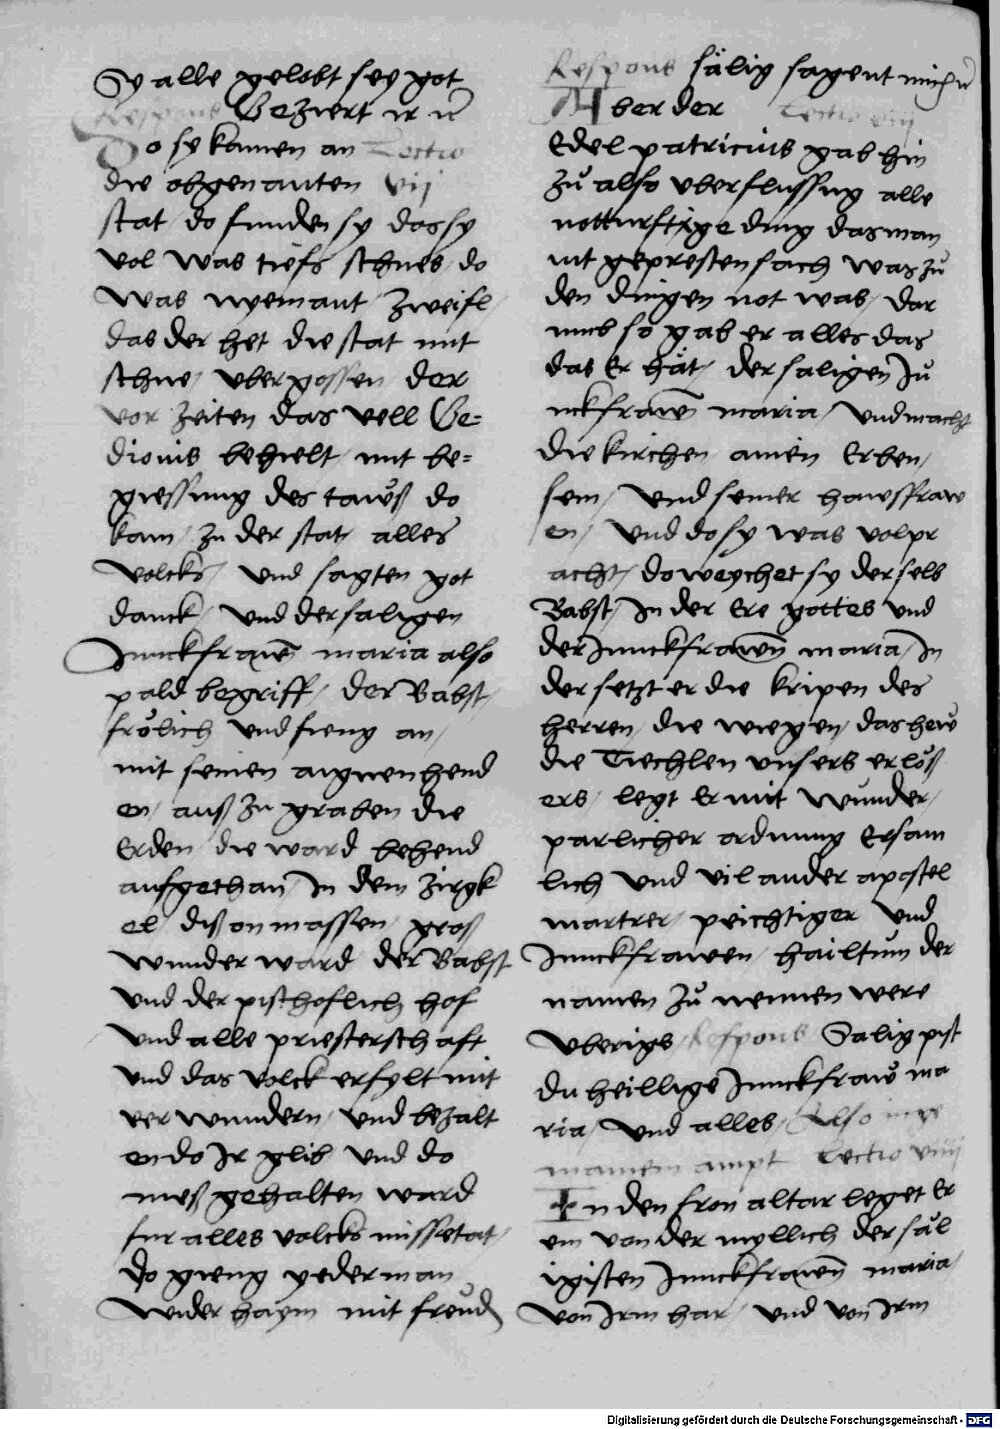 Sy alle gelobt sey got
Respons Gezuert ir
Do sy kamen an Lectio
die obgenanten vij
stat do funden sy das sy
vol was tiefs schnes do
was nyemant zweifl
das der het die stat mit
schne vbergossen der
vor zeiten das vell Ge-
dionis behielt mit be-
giessung des tawß do
kam zu der stat alles
volcks und sagten got
danck und der saligen
Junckfrawen maria also
pald begriff der Babst
frölich und fieng an
mit seinen aignen hend
en auß zu graben die
Erden die ward behend
aufgethan In dem zirgk
el diß onmassen groß
wunder ward der Babst
und der pischoflich hof
und alle priesterschaft
und das volck erfylt mit
verwundern und bezalt
en do Ir glib und do
meß gehalten ward
fur alles volcks missetat
do gieng yederman
wider haym mit freud
Respons sälig sagent mich
Aber der Lectio viij
Edel patricius gab hin
zů also vberflussig alle
notturftige ding das man
nit gepresten sach was zů
den dingen not was dar
umb so gab er alles das
das Er hät der saligen Ju
nckfrawen maria und macht
die kirchen ainen Erben
sein und seiner hawsfraw
en und do sy was volpr
acht do weychet sy der selb
Babst In der Ere gottes und
der Junckfrawen maria In
der setzt er die kripen des
herren die wiegen das hew
die Tiechlen unsers erlöß
ers legt Er mit wunder
parlicher ordnung Ersam
lich und vil ander apostel
martrer peichtiger und
Junckfrawen hailtum der
namen zů nennen were
vberigs Respons Salig pist
du heillige Junckfraw ma
ria und alles Also in ge
mainem ampt Lectio viiij
In den fron altar leget Er
ein von der myllich der säl
igisten Junckfrawen maria
von Irm har und von Irm
Digitalisierung gefördert durch die Deutsche Forschungsgemeinschaft - DFG